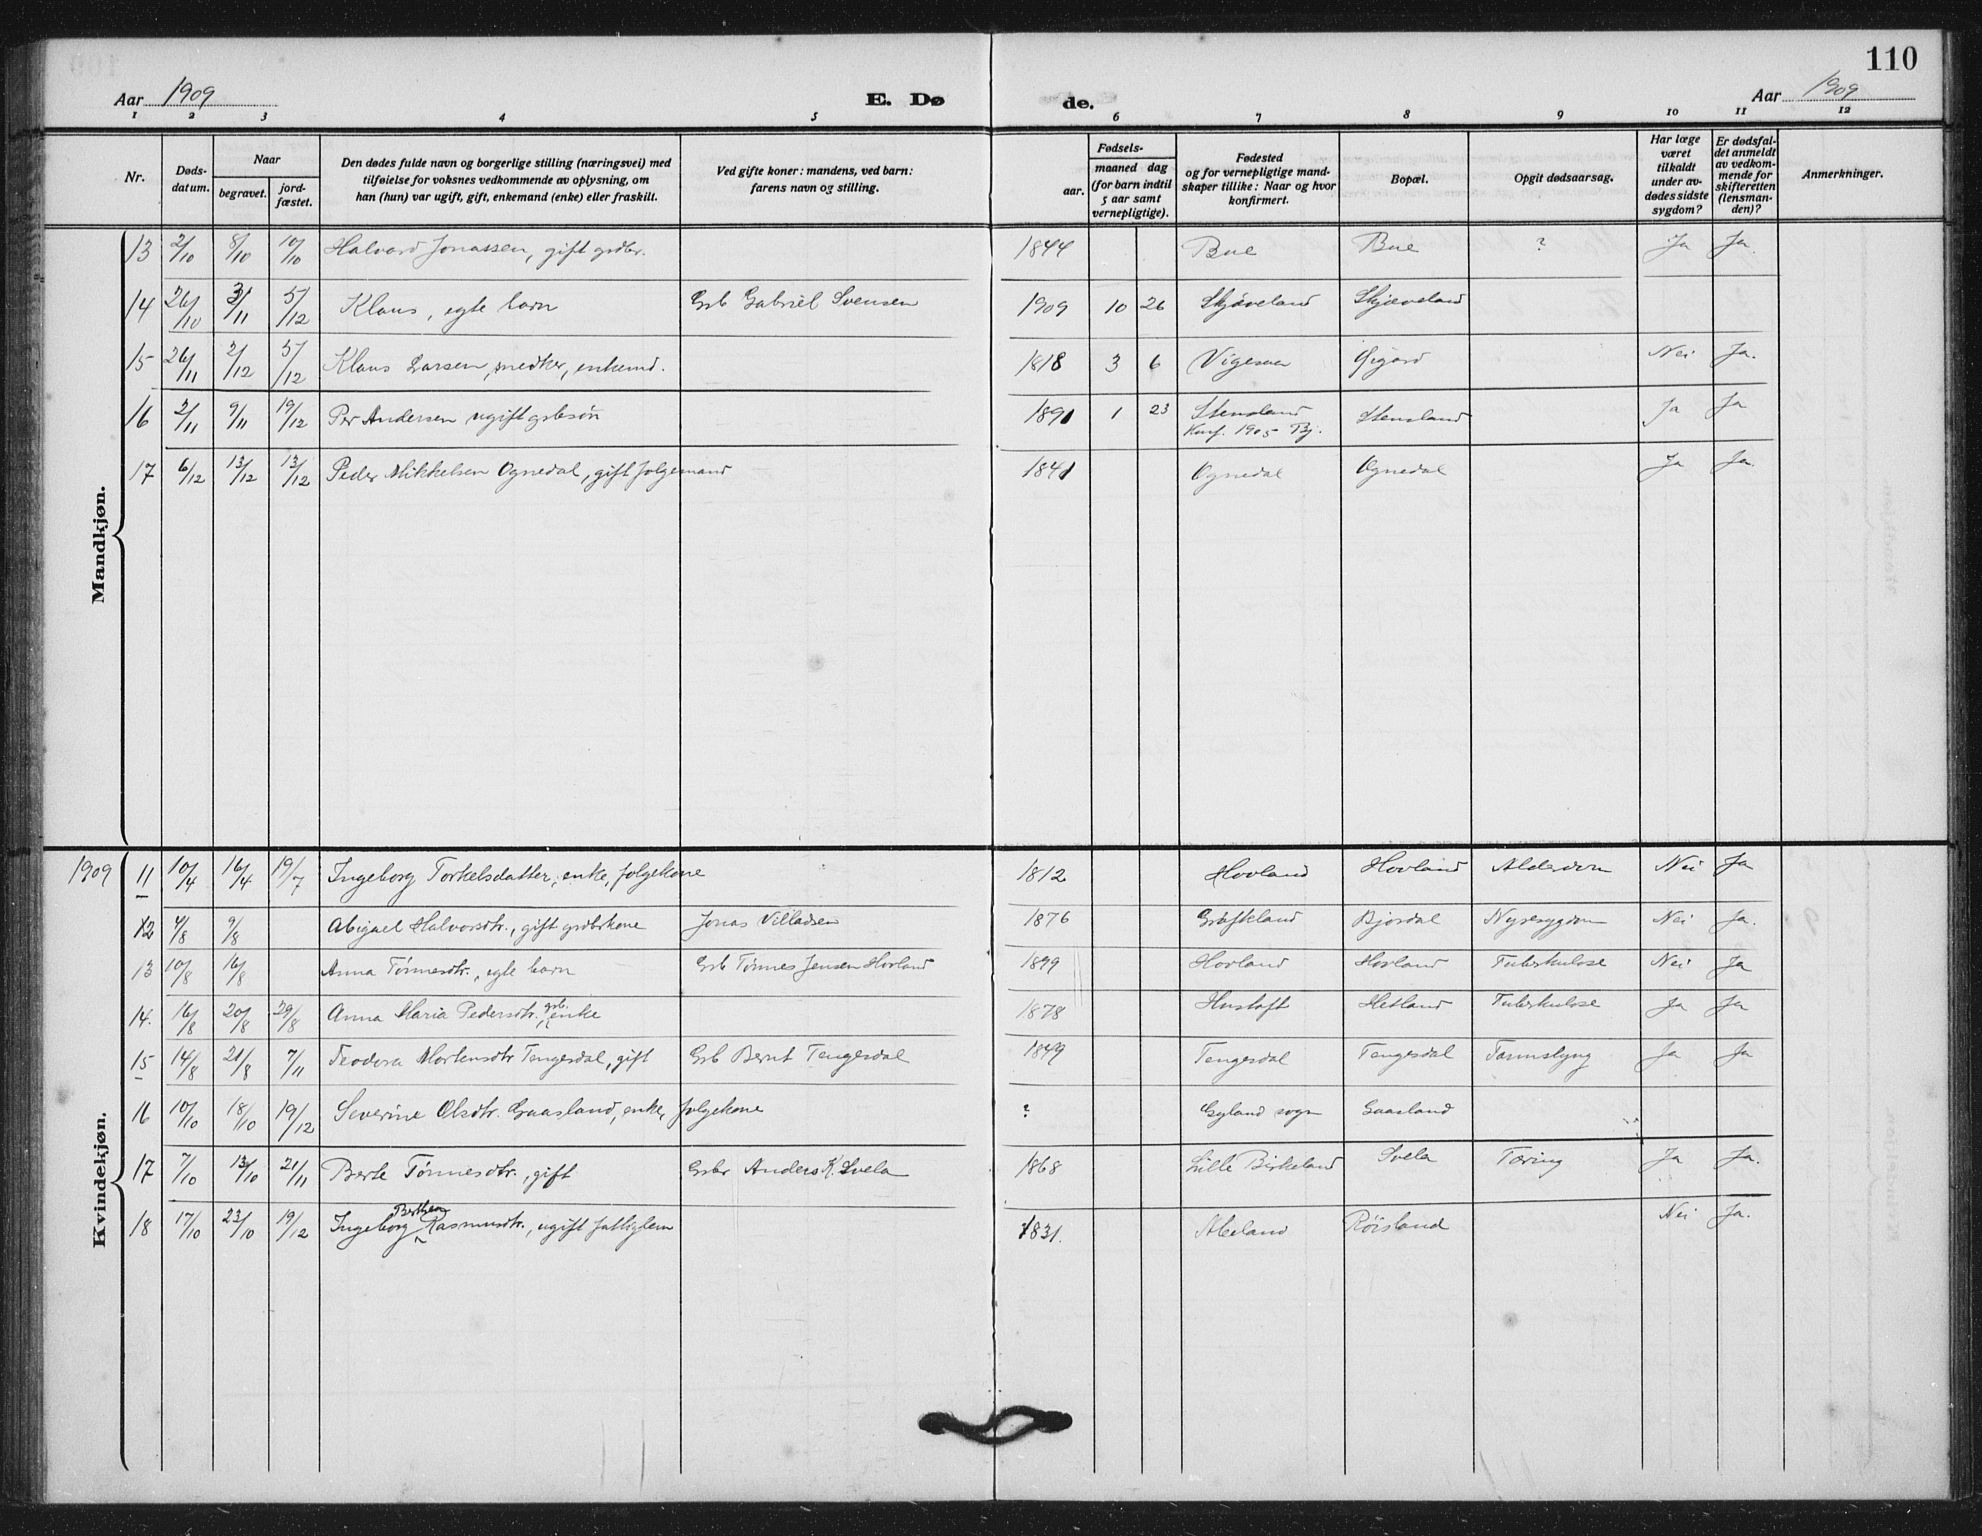 110
Aar 1909 E. Dø de. Aar 1909
1 2 3 4 5 6 7 8 9 10 11 12
Nr.
Døds-
datum.
Naar
begravet.
jord-
fæstet.
Den dødes fulde navn og borgerlige stilling (næringsvei) med
tilføielse for voksnes vedkommende av oplysning, om
han (hun) var ugift, gift, enkemand (enke) eller fraskilt.
Ved gifte koner: mandens, ved barn:
farens navn og stilling.
Fødsels-
aar.
maaned dag
(for barn indtil
5 aar samt
vernepligtige).
Fødested
og for vernepligtige mand-
skaper tillike: Naar og hvor
konfirmert.
Bopæl.
Opgit dødsaarsag.
Har læge
været
tilkaldt
under av-
dødes sidste
sygdom?
Er dødsfal-
det anmeldt
av vedkom-
mende for
skifteretten
(lensman-
den)?
Anmerkninger.
Mandkjøn.
13 2/10 8/10 10/10 Halvard Jonassen, gift grdbr. 1844 Bue Bue ? Ja Ja.
14 26/10 3/11 5/12 Klaus, egte barn Grb Gabriel Svensen 1909 10 26 Skjæveland Skjæveland
15 26/11 2/12 5/12 Klaus Larsen, snedker, enkemd. 1818 3 6 Vigesaa Øigard Nei Ja.
16 2/11 9/11 19/12 Per Andersen ugift grbsøn 1891 1 23 Stensland Stensland Ja Ja
Konf. 1905 Bj.
17 6/12 13/12 13/12 Peder Mikkelsen Ognedal, gift folgemand 1841 Ognedal Ognedal Ja Ja.
Kvindekjøn.
1909 11 10/4 16/4 19/7 Ingeborg Torkelsdatter, enke, folgekone 1812 Hovland Hovland Alderdom Nei Ja
12 4/8 9/8 Abigael Halvorsdtr., gift grdbrkone Jonas Villadsen 1876 Bjordal Nyresygdom Nei Ja.
13 10/8 16/8 Anna Tønnesdtr., egte barn Grb Tønnes Jensen Hovland 1899 Hovland Hovland Tuberkulose Nei Ja
14. 16/8 20/8 29/8 Anna Maria Pedersdtr. grb. enke 1878 Hustoft Hetland Tuberkulose Ja Ja
15 14/8 21/8 7/11 Teodora Mortensdtr Tengesdal, gift Grb Bernt Tengesdal 1849 Tengesdal Tengesdal Tarmslyng Ja Ja
16 10/10 18/10 19/12 Severine Olsdtr. Gaasland, enke, folgekone ? Gyland sogn Gaasland
17 7/10 13/10 21/11 Berte Tønnesdtr., gift Grbr Anders K. Svela 1868 Lille Birkeland Svela Tæring Ja Ja.
18 17/10 23/10 19/12 Ingeborg Berthea Rasmusdtr., ugift fattiglem 1831. Abeland Røisland Nei Ja.